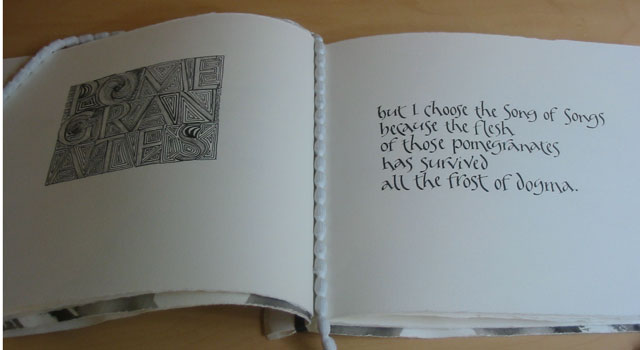 POME
GRAN
ATES
but I choose the Song of Songs
because the flesh
of those pomegranates
has survived
all the frost of dogma.